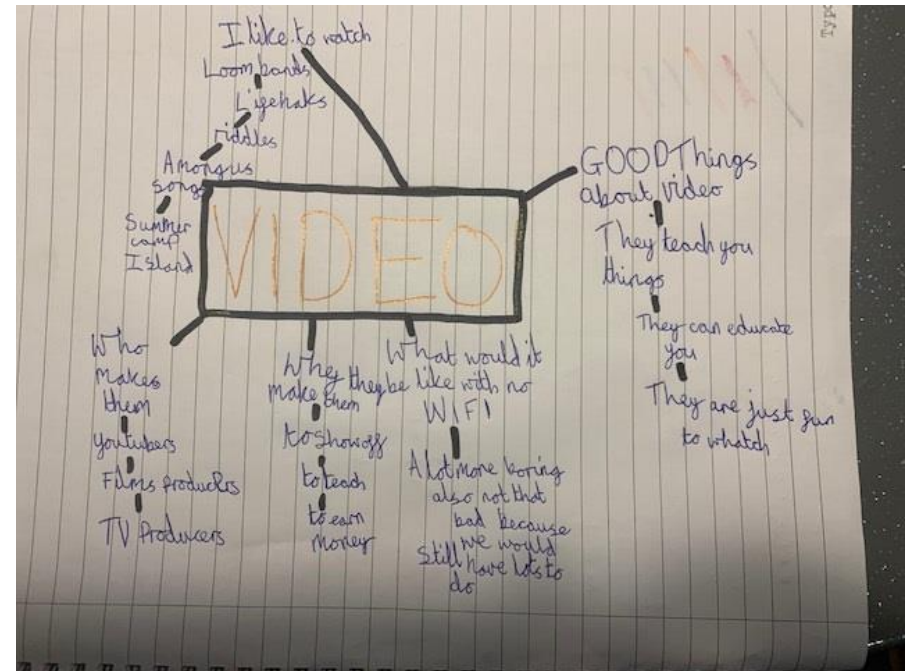 I like to watch
Loom bands
Lifehaks
riddles
Among us
songs
Summer
camp
Island
VIDEO
GOOD Things
about video
They teach you
things
They can educate
you
They are just fun
to whatch
Who
makes
them
youtubers
Films producers
TV Producers
Whey they
make them
to show off
to teach
to earn
money
What would it
be like with no
WIFI
A lot more boring
also not that
bad because
we would
still have lots to
do
Typ